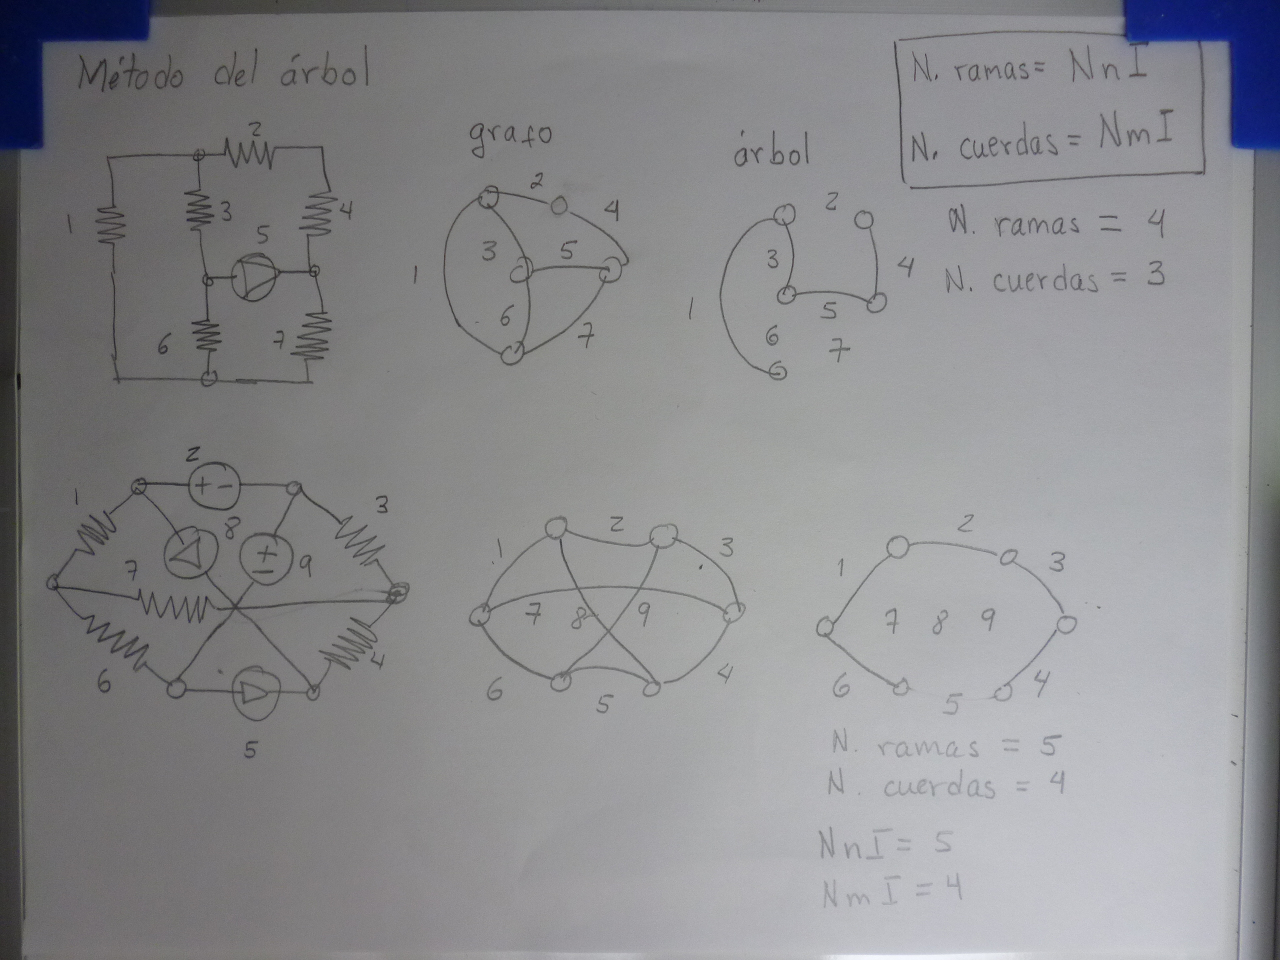 Método del árbol
N. ramas = NnI
N. cuerdas = NmI
grafo
árbol
N. ramas = 4
N. cuerdas = 3
1
2
3
4
5
6
7
1
2
3
4
5
6
7
1
2
3
4
5
6
7
1
2
3
4
5
6
7
8
9
+ -
+ -
1
2
3
4
5
6
7
8
9
1
2
3
4
5
6
7
8
9
N. ramas = 5
N. cuerdas = 4
NnI = 5
NmI = 4